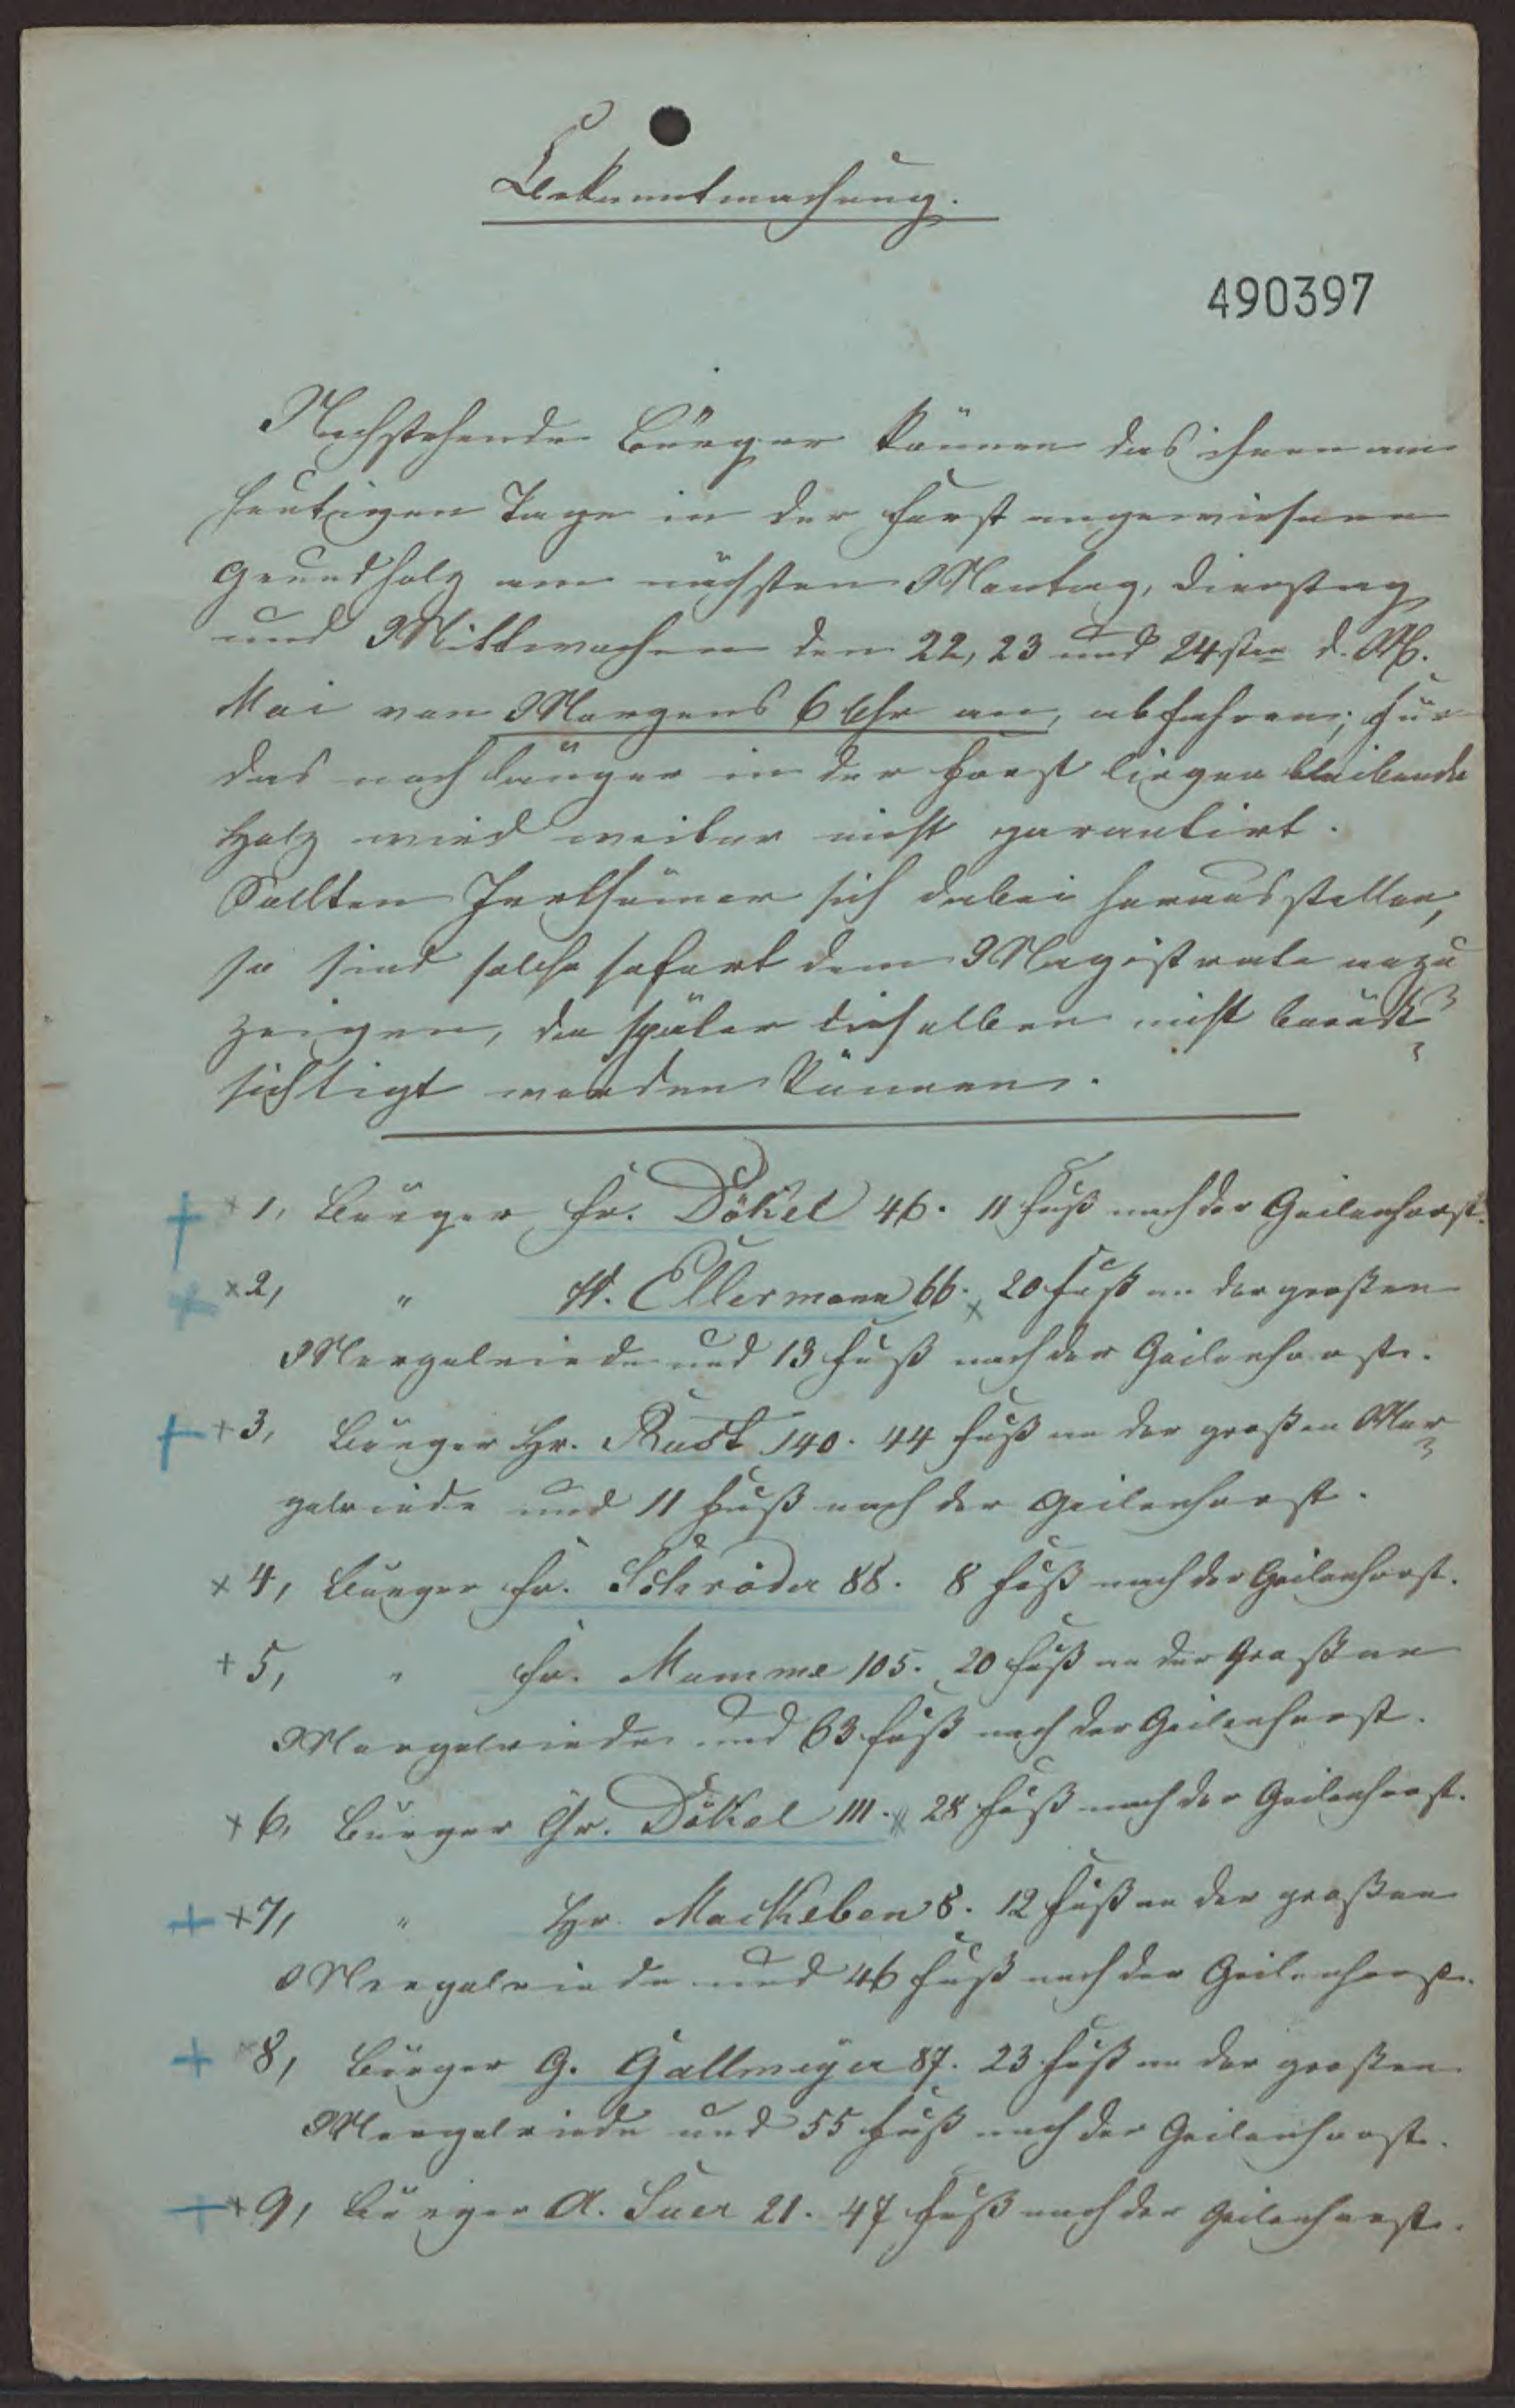 Bekanntmachung.
490397
Nachstehende Bürger können das ihnen am
heutigen Tage in der Forst angewiesene
Grundholz am nächsten Montag, Dienstag
und Mittwochen den 22, 23 und 24sten d. M.
Mai von Morgens 6 Uhr an, abfahren; für
das noch länger in der Forst liegen bleibende
Holz wird weiter nicht garantirt.
Sollten Irrthümer sich dabei herausstellen,
so sind solche sofort dem Magistrate anzu
zeigen, da später dieselben nicht berück-
sichtigt werden können.
1, Bürger Fr. Dökel 46. 11 Fuß nach der Geilenhorst.
2, " W. Ellermann 66. 20 Fuß an der großen
Mergelriede und 13 Fuß nach der Geilenhorst.
3, Bürger Hr. Rust 140. 44 Fuß an der großen Mer-
gelriede und 11 Fuß nach der Geilenhorst.
4, Bürger Fr. Schröder 88. 8 Fuß nach der Geilenhorst.
5, " Fr. Mumme 105. 20 Fuß an der Großen
Mergelriede und 63 Fuß nach der Geilenhorst.
6, Bürger Chr. Dökel 111. 28 Fuß nach der Geilenhorst.
7, " Hr. Mackeben 8. 12 Fuß an der großen
Mergelriede und 46 Fuß nach der Geilenhorst.
8, Bürger G. Gallmeyer 87. 23 Fuß an der großen
Mergelriede und 55 Fuß nach der Geilenhorst.
9, Bürger A. Suer 21. 47 Fuß nach der Geilenhorst.